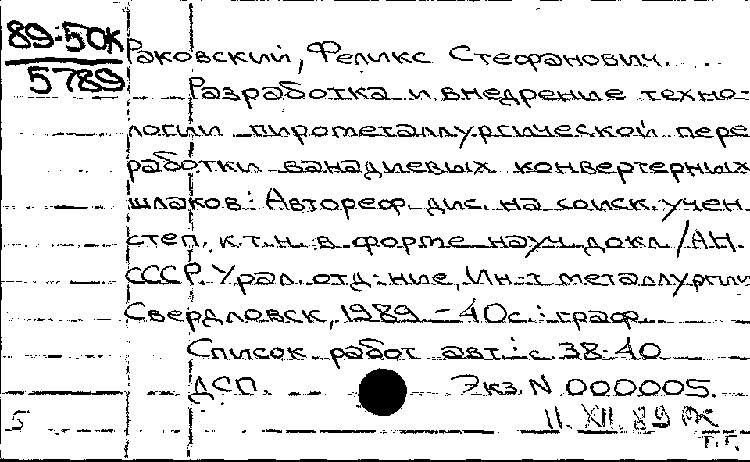 89-50К
5789
Раковский, Феликс Стефанович.
Разработка и внедрение техно-
логии пирометаллургической пере
работки ванадиевых конвертерных
шлаков: Автореф. дис. на соиск. учен.
степ. к.т.н. в форме науч. докл / АН.
СССР. Урал. отд-ние, Ин-т металлургии
Свердловск, 1989. - 40с.: граф.
Список работ авт.: с 38-40
ДСП. Экз. N 000005.
5 11. XII. 89
Т.Г.